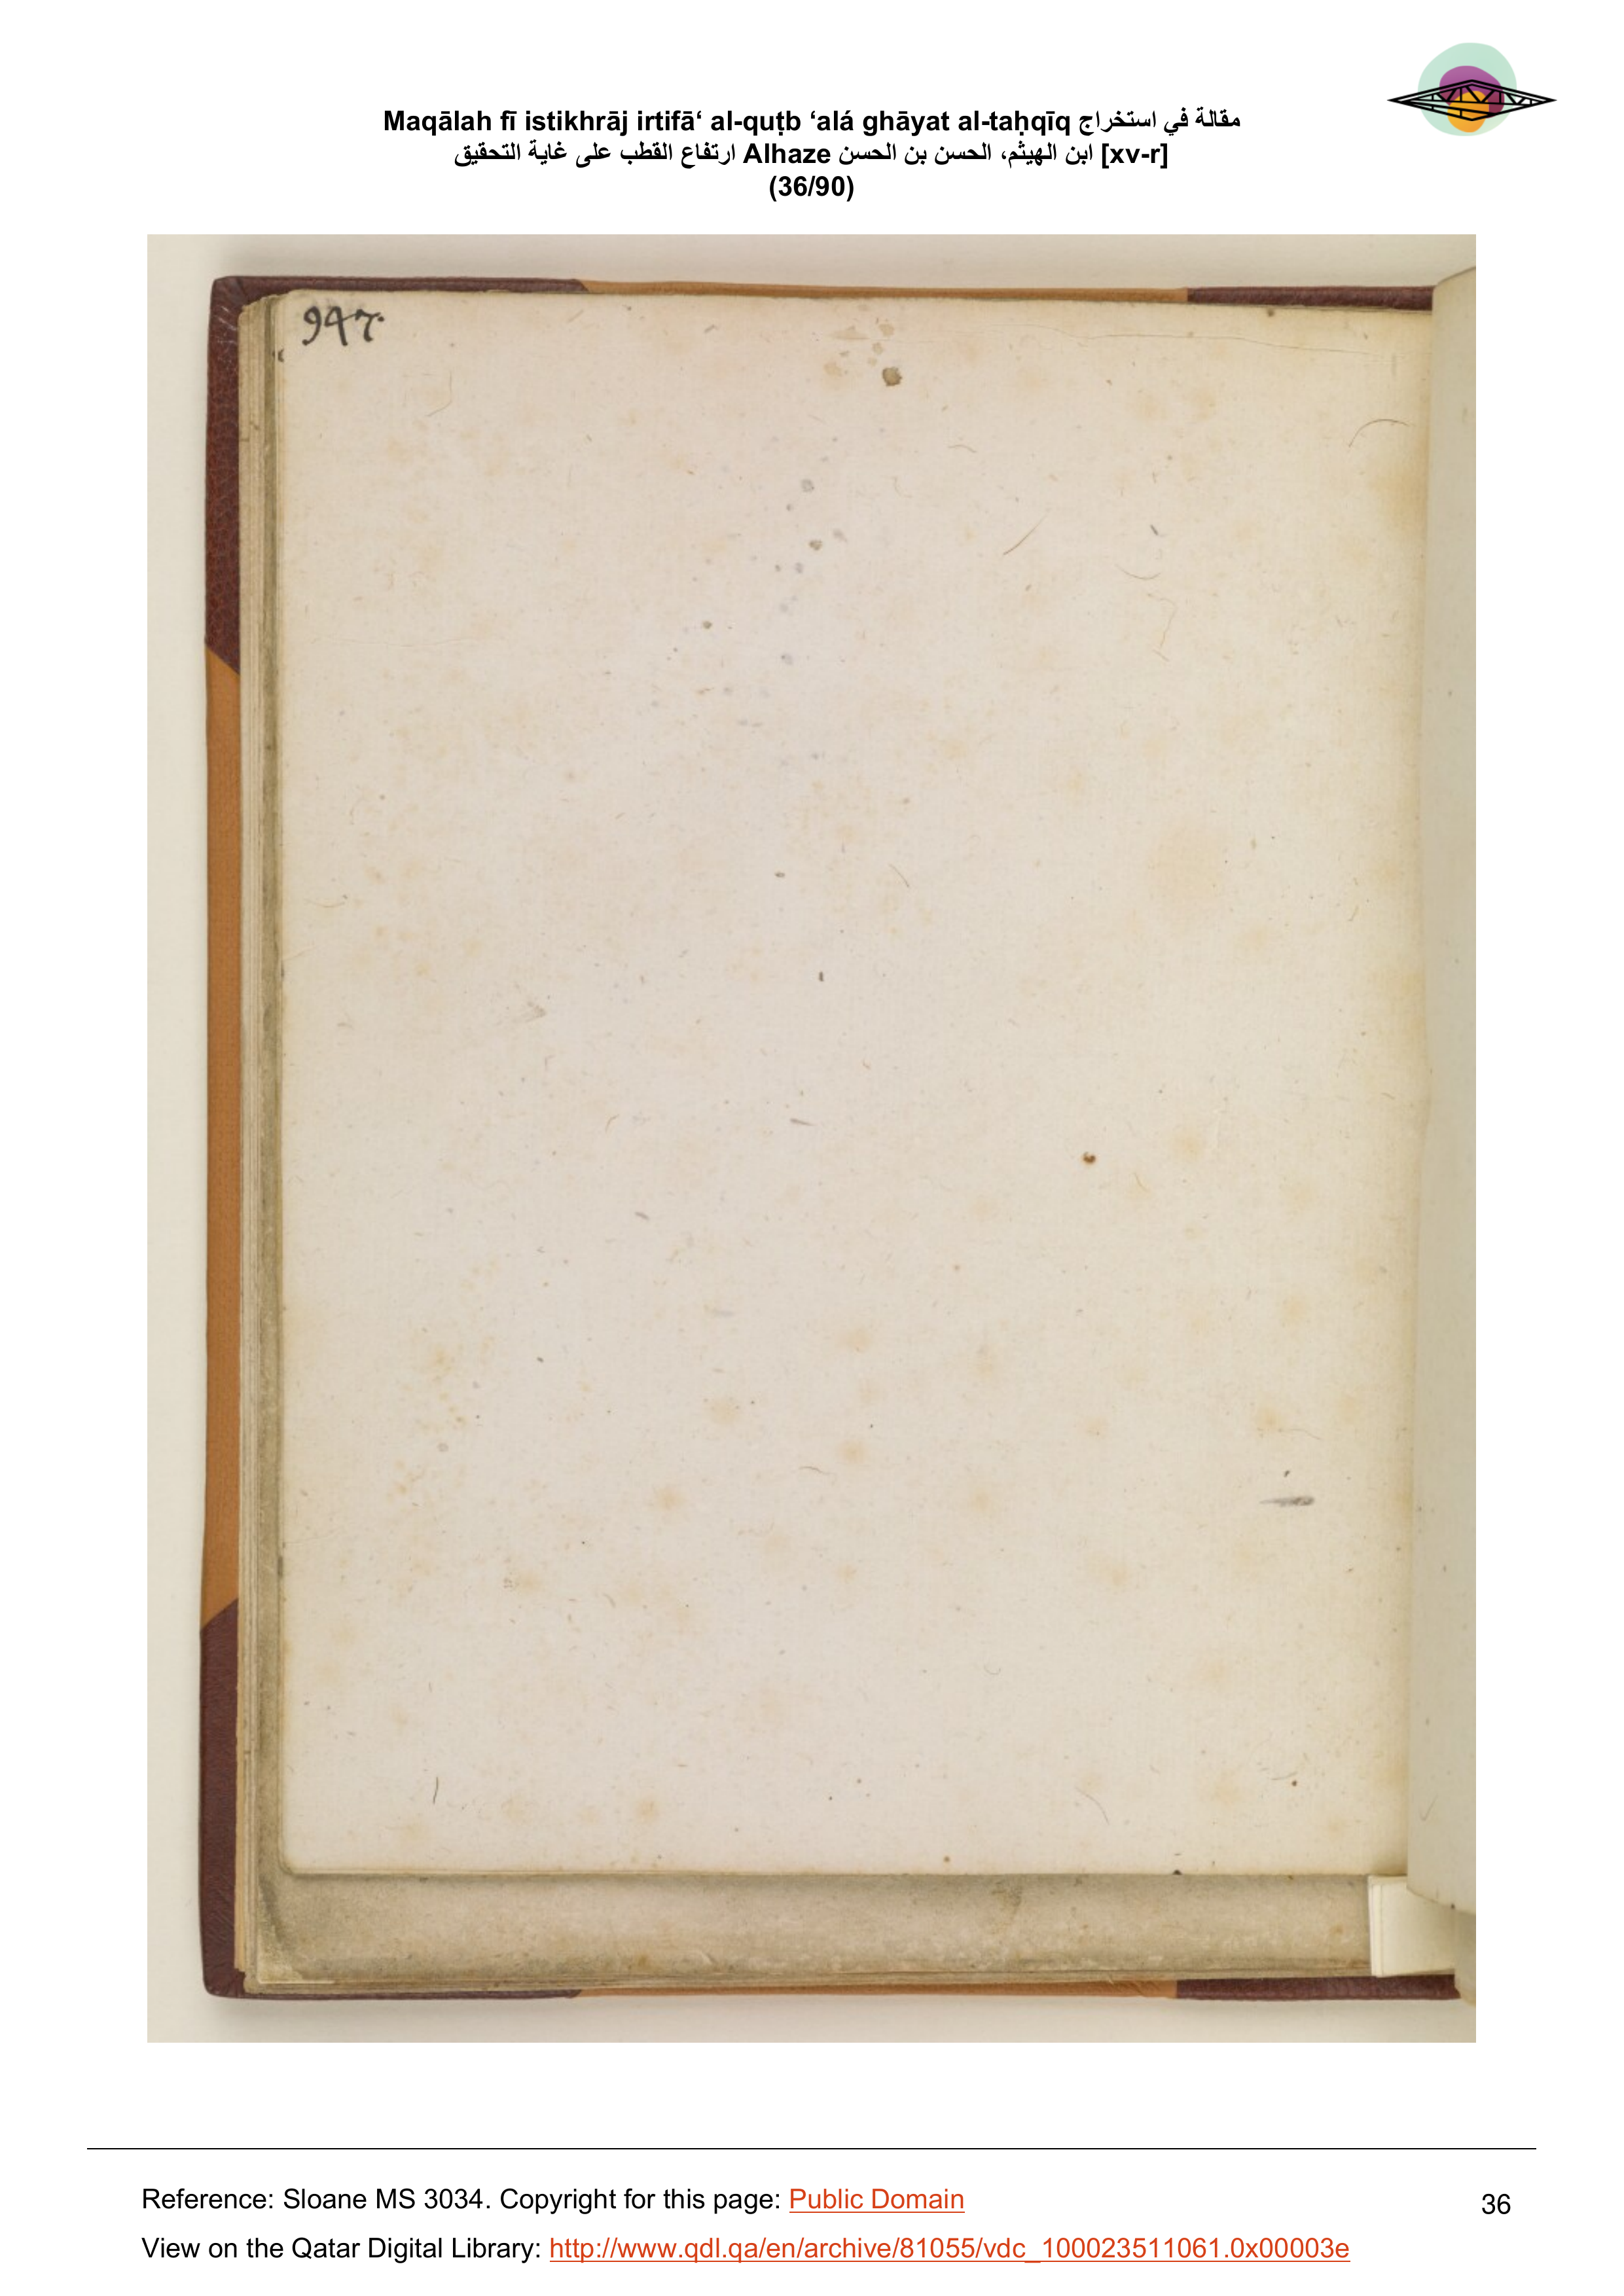 Maqālah fī istikhrāj irtifā‘ al-quṭb ‘alá ghāyat al-taḥqīq مقالة في استخراج
ارتفاع القطب على غاية التحقيق Alhaze ابن الهيثم، الحسن بن الحسن [xv-r]
(36/90)
947.
Reference: Sloane MS 3034. Copyright for this page: Public Domain
36
View on the Qatar Digital Library: http://www.qdl.qa/en/archive/81055/vdc_100023511061.0x00003e